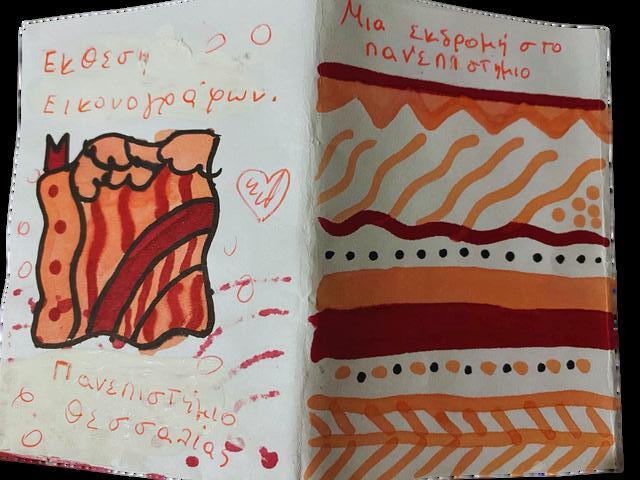 Εκθεση
εικονογράφων.
Πανεπιστήμιο
Θεσσαλίας
Μια εκδρομή στο
πανεπιστήμιο